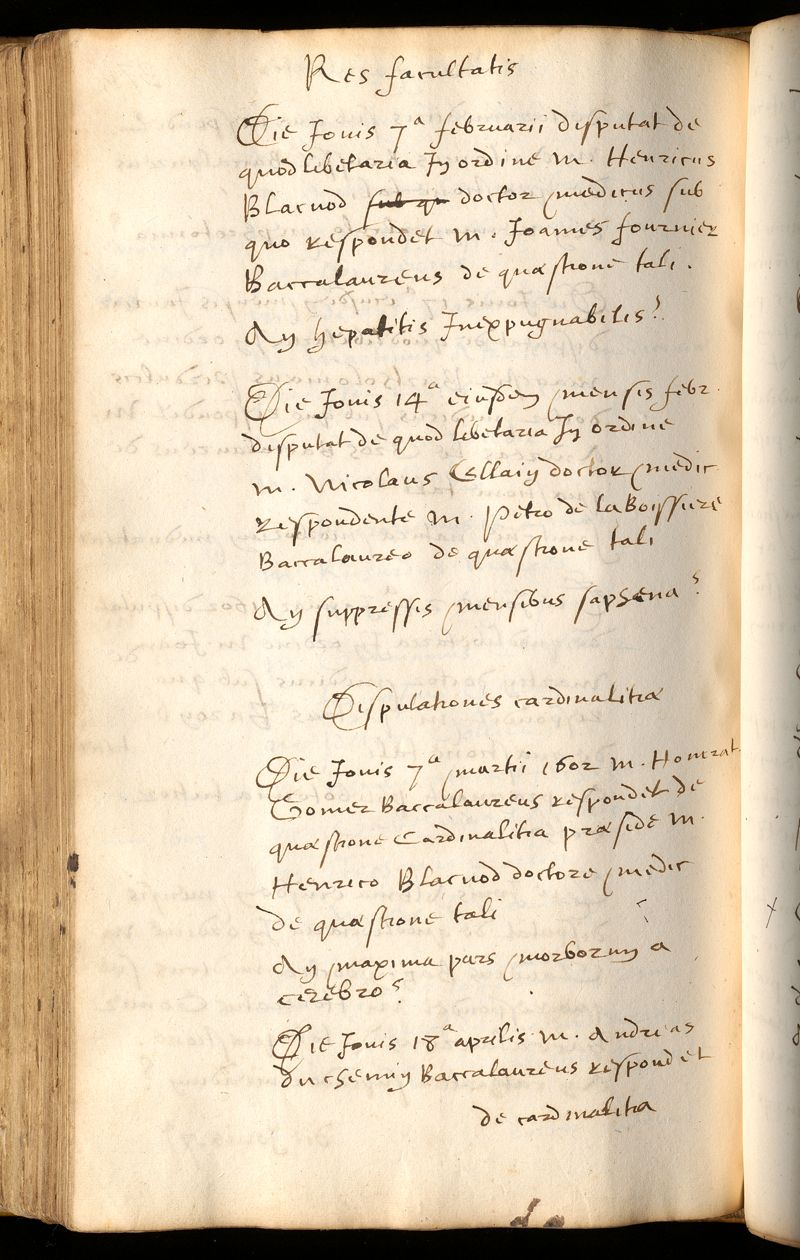 Res facultatis
Die Jouis 7ª februarii disputat de
quodlibetaria In ordine M. Henricus
Blacuod sub qu doctor medicus sub
quo respondet M. Joannes fournier
Baccalaureus de quæstione tali.
An hepatitis Inexpugnabilis?
Die Jouis 14ª eiusdem mensis febr.
disputat de quod libetaria In ordine
M. Nicolaus Ellain doctor medic
respondente M. Petro de la Boissiere
Baccalaureo de quæstione tali
An suppressis mensibus saphena?
Disputationes cardinalitiæ
Die Jouis 7ª martii 1602 M. Honorat
Gomer Baccalaureus respondet de
quæstione Cardinalitia præside M.
Henrico Blacuod doctore medic
de quæstione tali
An maxima pars morborum a
cerebro?
Die Jouis 18ª aprilis M. Andreas
du chemin Baccalaureus respondet
de cardinalitia